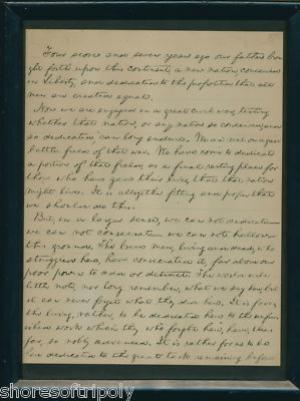 Four score and seven years ago our fathers brou
ght forth upon this continent a new nation, conceived
in Liberty, and dedicated to the proposition that all
men are created equal.
Now we are engaged in a great civil war, testing
whether that nation, or any nation so conceived and
so dedicated, can long endure. We are met on a great
battle field of that war. We have come to dedicate
a portion of that field, as a final resting place for
those who here gave their lives, that that nation
might live. It is altogether fitting and proper that
we should do this.
But, in a larger sense, we can not dedicate
we can not consecrate we can not hallow
this ground. The brave men, living and dead, who
struggled here, have consecrated it, far above our
poor power to add or detract. The world will
little note, nor long remember, what we say here, but
it can never forget what they did here. It is for us
the living, rather, to be dedicated here to the unfin
ished work which they who fought here, have, thus
far, so nobly advanced. It is rather for us to be
here dedicated to the great task remaining before
shoresoftripoly